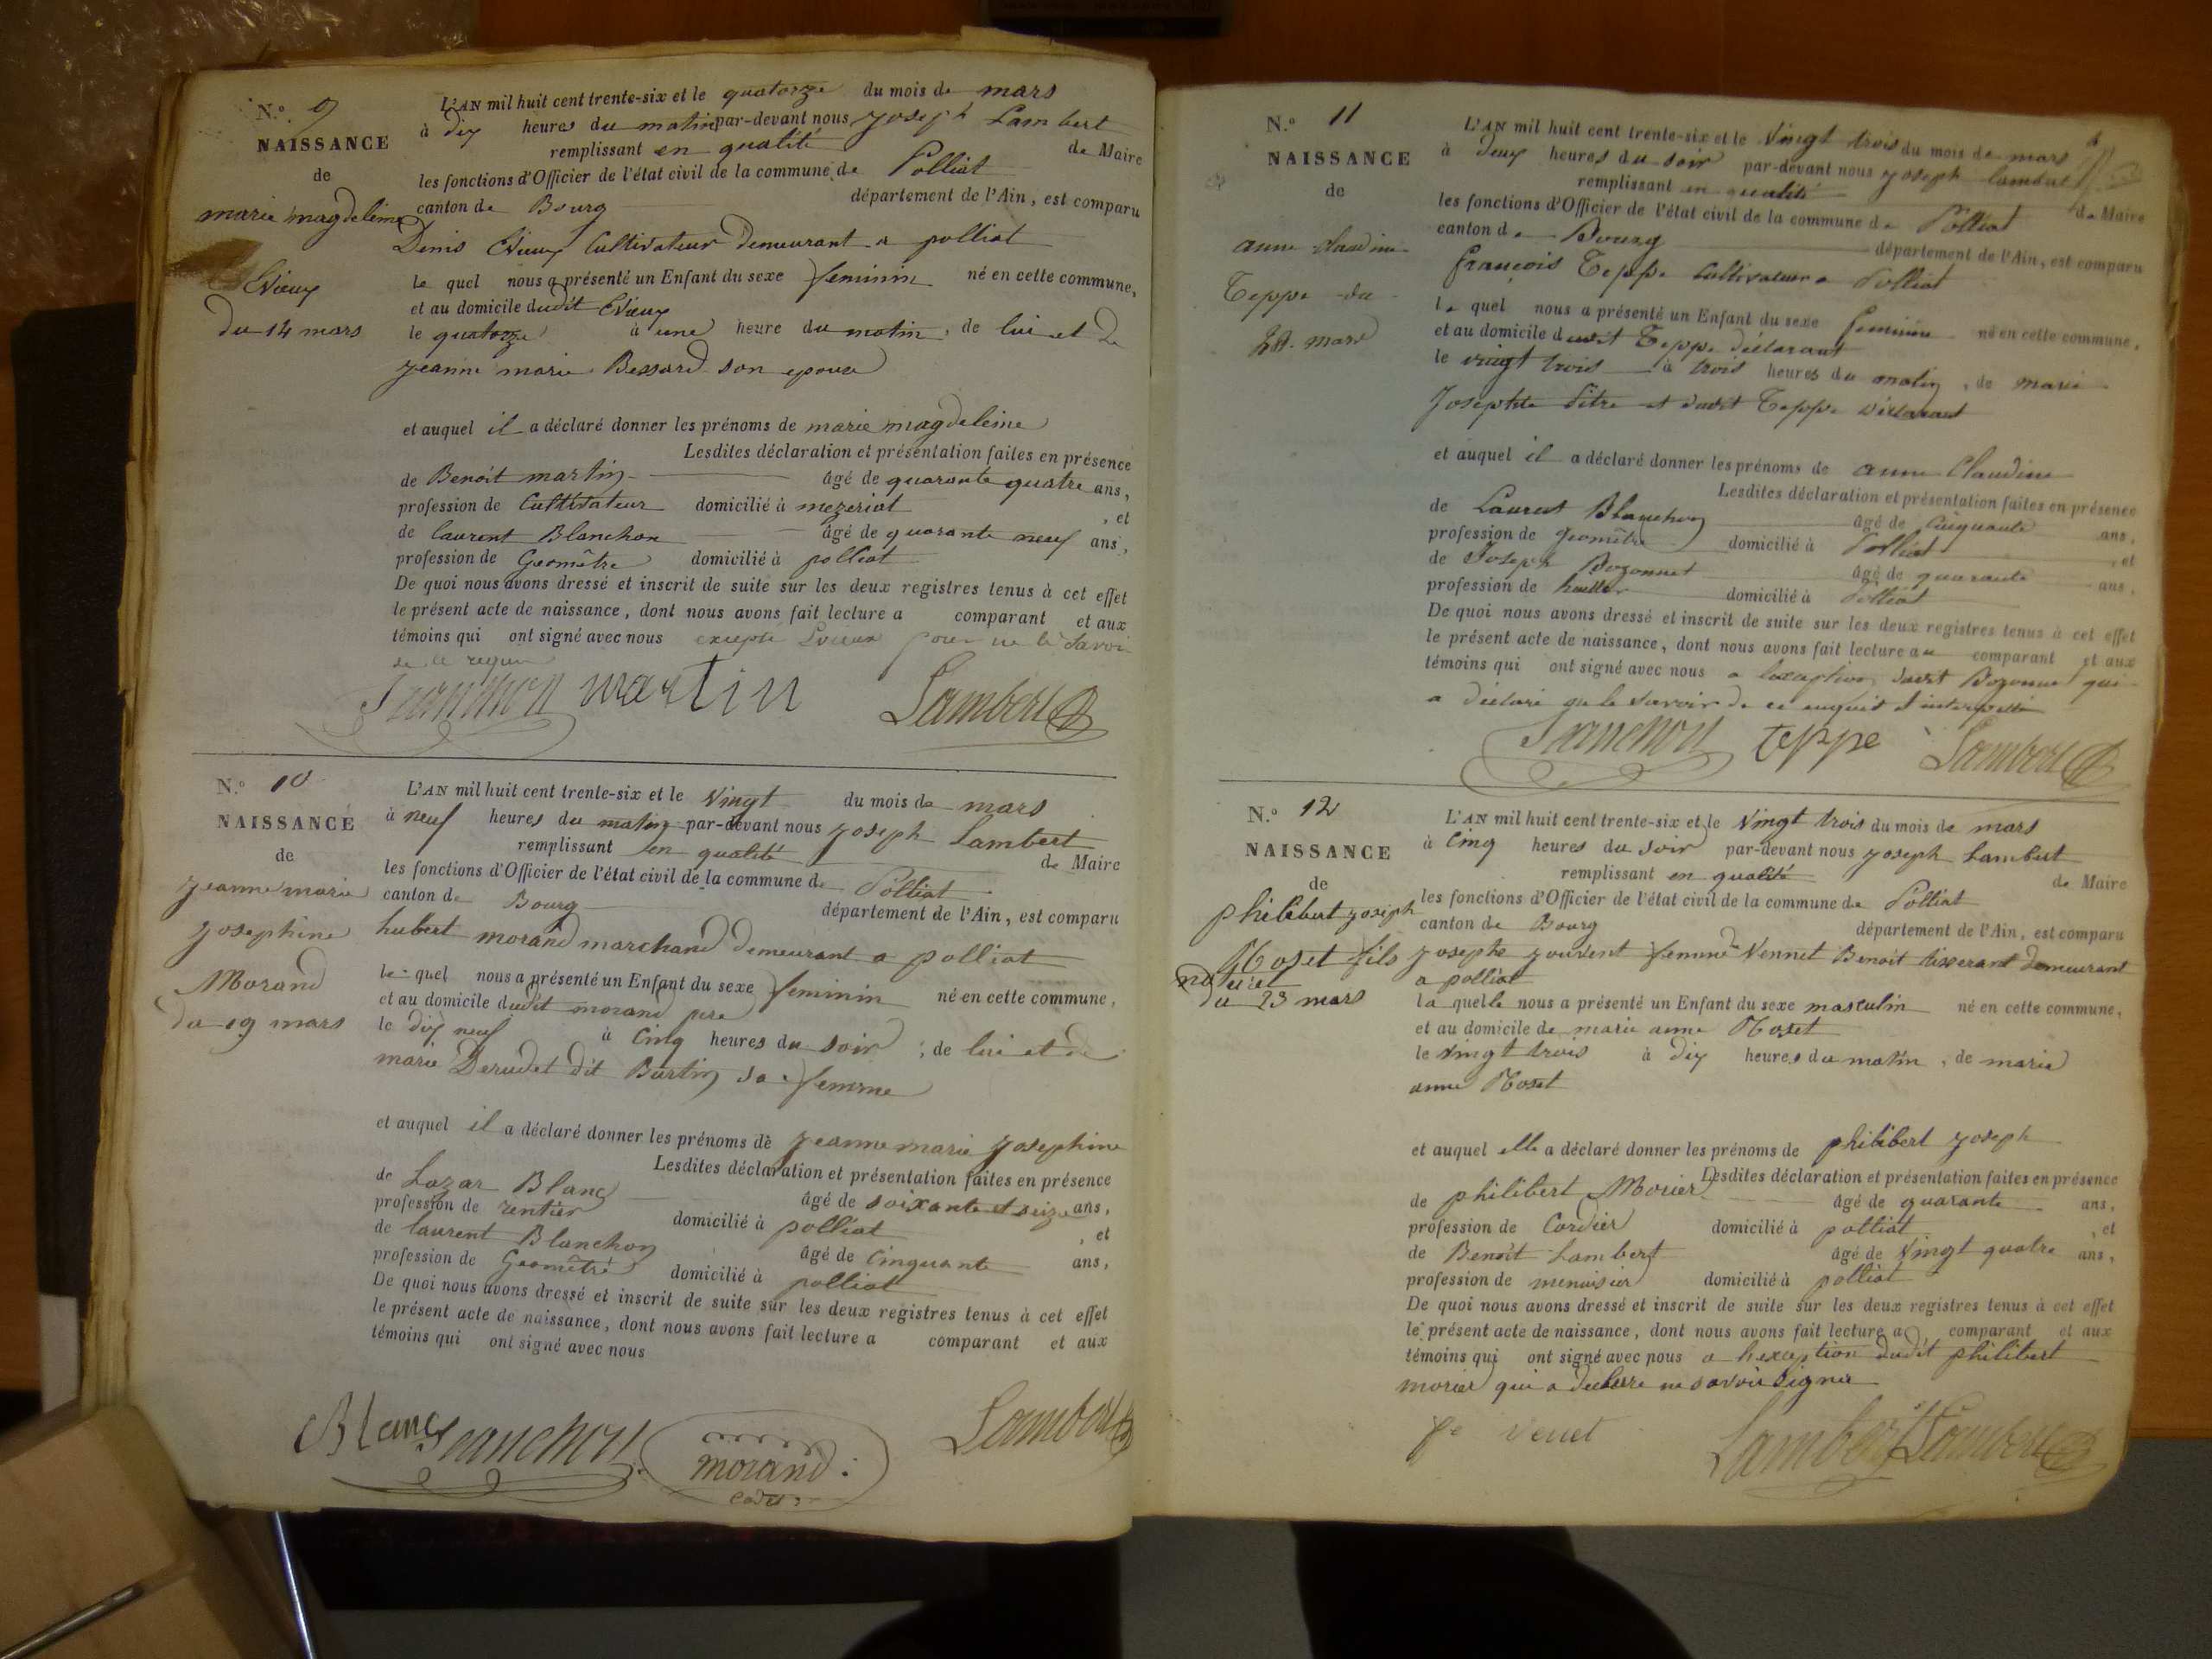 N.° 9
NAISSANCE
de
marie magdeleine
Evieux
du 14 mars
L'AN mil huit cent trente-six et le quatorze du mois de mars
à dix heures du matin par-devant nous joseph Lambert
remplissant en qualité de Maire
les fonctions d'Officier de l'état civil de la commune de Polliat
canton de Bourg département de l'Ain, est comparu
Denis Evieux Cultivateur demeurant a polliat
le quel nous a présenté un Enfant du sexe feminin né en cette commune,
et au domicile dudit Evieux
le quatorze à une heure du matin, de lui et de
jeanne marie Bessard son epouse
et auquel il a déclaré donner les prénoms de marie magdeleine
Lesdites déclaration et présentation faites en présence
de Benoit martin âgé de quarante quatre ans,
profession de Cultivateur domicilié à mezeriat, et
de laurent Blanchon âgé de quarante neuf ans,
profession de Geomêtre domicilié à polliat
De quoi nous avons dressé et inscrit de suite sur les deux registres tenus à cet effet
le présent acte de naissance, dont nous avons fait lecture a comparant et aux
témoins qui ont signé avec nous excepté Evieux pour ne le savoir
de ce requis
Blanchon martin Lambert
N.° 10
NAISSANCE
de
jeanne marie
josephine
Morand
du 19 mars
L'AN mil huit cent trente-six et le vingt du mois de mars
à neuf heures du matin par-devant nous joseph Lambert
remplissant en qualité de Maire
les fonctions d'Officier de l'état civil de la commune de Polliat
canton de Bourg département de l'Ain, est comparu
hubert morand marchand demeurant a polliat
le quel nous a présenté un Enfant du sexe feminin né en cette commune,
et au domicile dudit morand pere
le dix neuf à cinq heures du soir, de lui et de
marie Derudet dit Burtin sa femme
et auquel il a déclaré donner les prénoms de jeanne marie josephine
Lesdites déclaration et présentation faites en présence
de Lazar Blanc âgé de soixante et seize ans,
profession de rentier domicilié à polliat, et
de laurent Blanchon âgé de cinquante ans,
profession de Geomêtre domicilié à polliat
De quoi nous avons dressé et inscrit de suite sur les deux registres tenus à cet effet
le présent acte de naissance, dont nous avons fait lecture a comparant et aux
témoins qui ont signé avec nous
Blanc Blanchon morand cadet Lambert
N.° 11
NAISSANCE
de
anne claudine
Teppe du
mars
L'AN mil huit cent trente-six et le vingt trois du mois de mars
à deux heures du soir par-devant nous joseph Lambert
remplissant en qualité de Maire
les fonctions d'Officier de l'état civil de la commune de Polliat
canton de Bourg département de l'Ain, est comparu
françois Teppe Cultivateur a Polliat
le quel nous a présenté un Enfant du sexe feminin né en cette commune,
et au domicile dudit Teppe déclarant
le vingt trois à trois heures du matin, de marie
Josephte Pitre et dudit Teppe déclarant
et auquel il a déclaré donner les prénoms de anne Claudine
Lesdites déclaration et présentation faites en présence
de Laurent Blanchon âgé de cinquante ans,
profession de géomêtre domicilié à Polliat, et
de Joseph Bozonnet âgé de quarante ans,
profession de domicilié à Polliat
De quoi nous avons dressé et inscrit de suite sur les deux registres tenus à cet effet
le présent acte de naissance, dont nous avons fait lecture au comparant et aux
témoins qui ont signé avec nous a lexception dudit Bozonnet qui
a déclaré ne le savoir de ce enquis et interpellé
Blanchon teppe Lambert
N.° 12
NAISSANCE
de
philibert joseph
Moset fils
naturel
du 23 mars
L'AN mil huit cent trente-six et le vingt trois du mois de mars
à cinq heures du soir par-devant nous joseph Lambert
remplissant en qualité de Maire
les fonctions d'Officier de l'état civil de la commune de Polliat
canton de Bourg département de l'Ain, est comparu
josephe jouvent femme de Vennet Benoit tisserant demeurant
a polliat
la quelle nous a présenté un Enfant du sexe masculin né en cette commune,
et au domicile de marie anne Moset
le vingt trois à dix heures du matin, de marie
anne Moset
et auquel elle a déclaré donner les prénoms de philibert joseph
Lesdites déclaration et présentation faites en présence
de philibert Morier âgé de quarante ans,
profession de Cordier domicilié à polliat, et
de Benoit Lambert âgé de vingt quatre ans,
profession de menuisier domicilié à polliat
De quoi nous avons dressé et inscrit de suite sur les deux registres tenus à cet effet
le présent acte de naissance, dont nous avons fait lecture a comparant et aux
témoins qui ont signé avec nous a lexception dudit philibert
morier qui a declarre ne savoir signer
fe venet Lambert Lambert